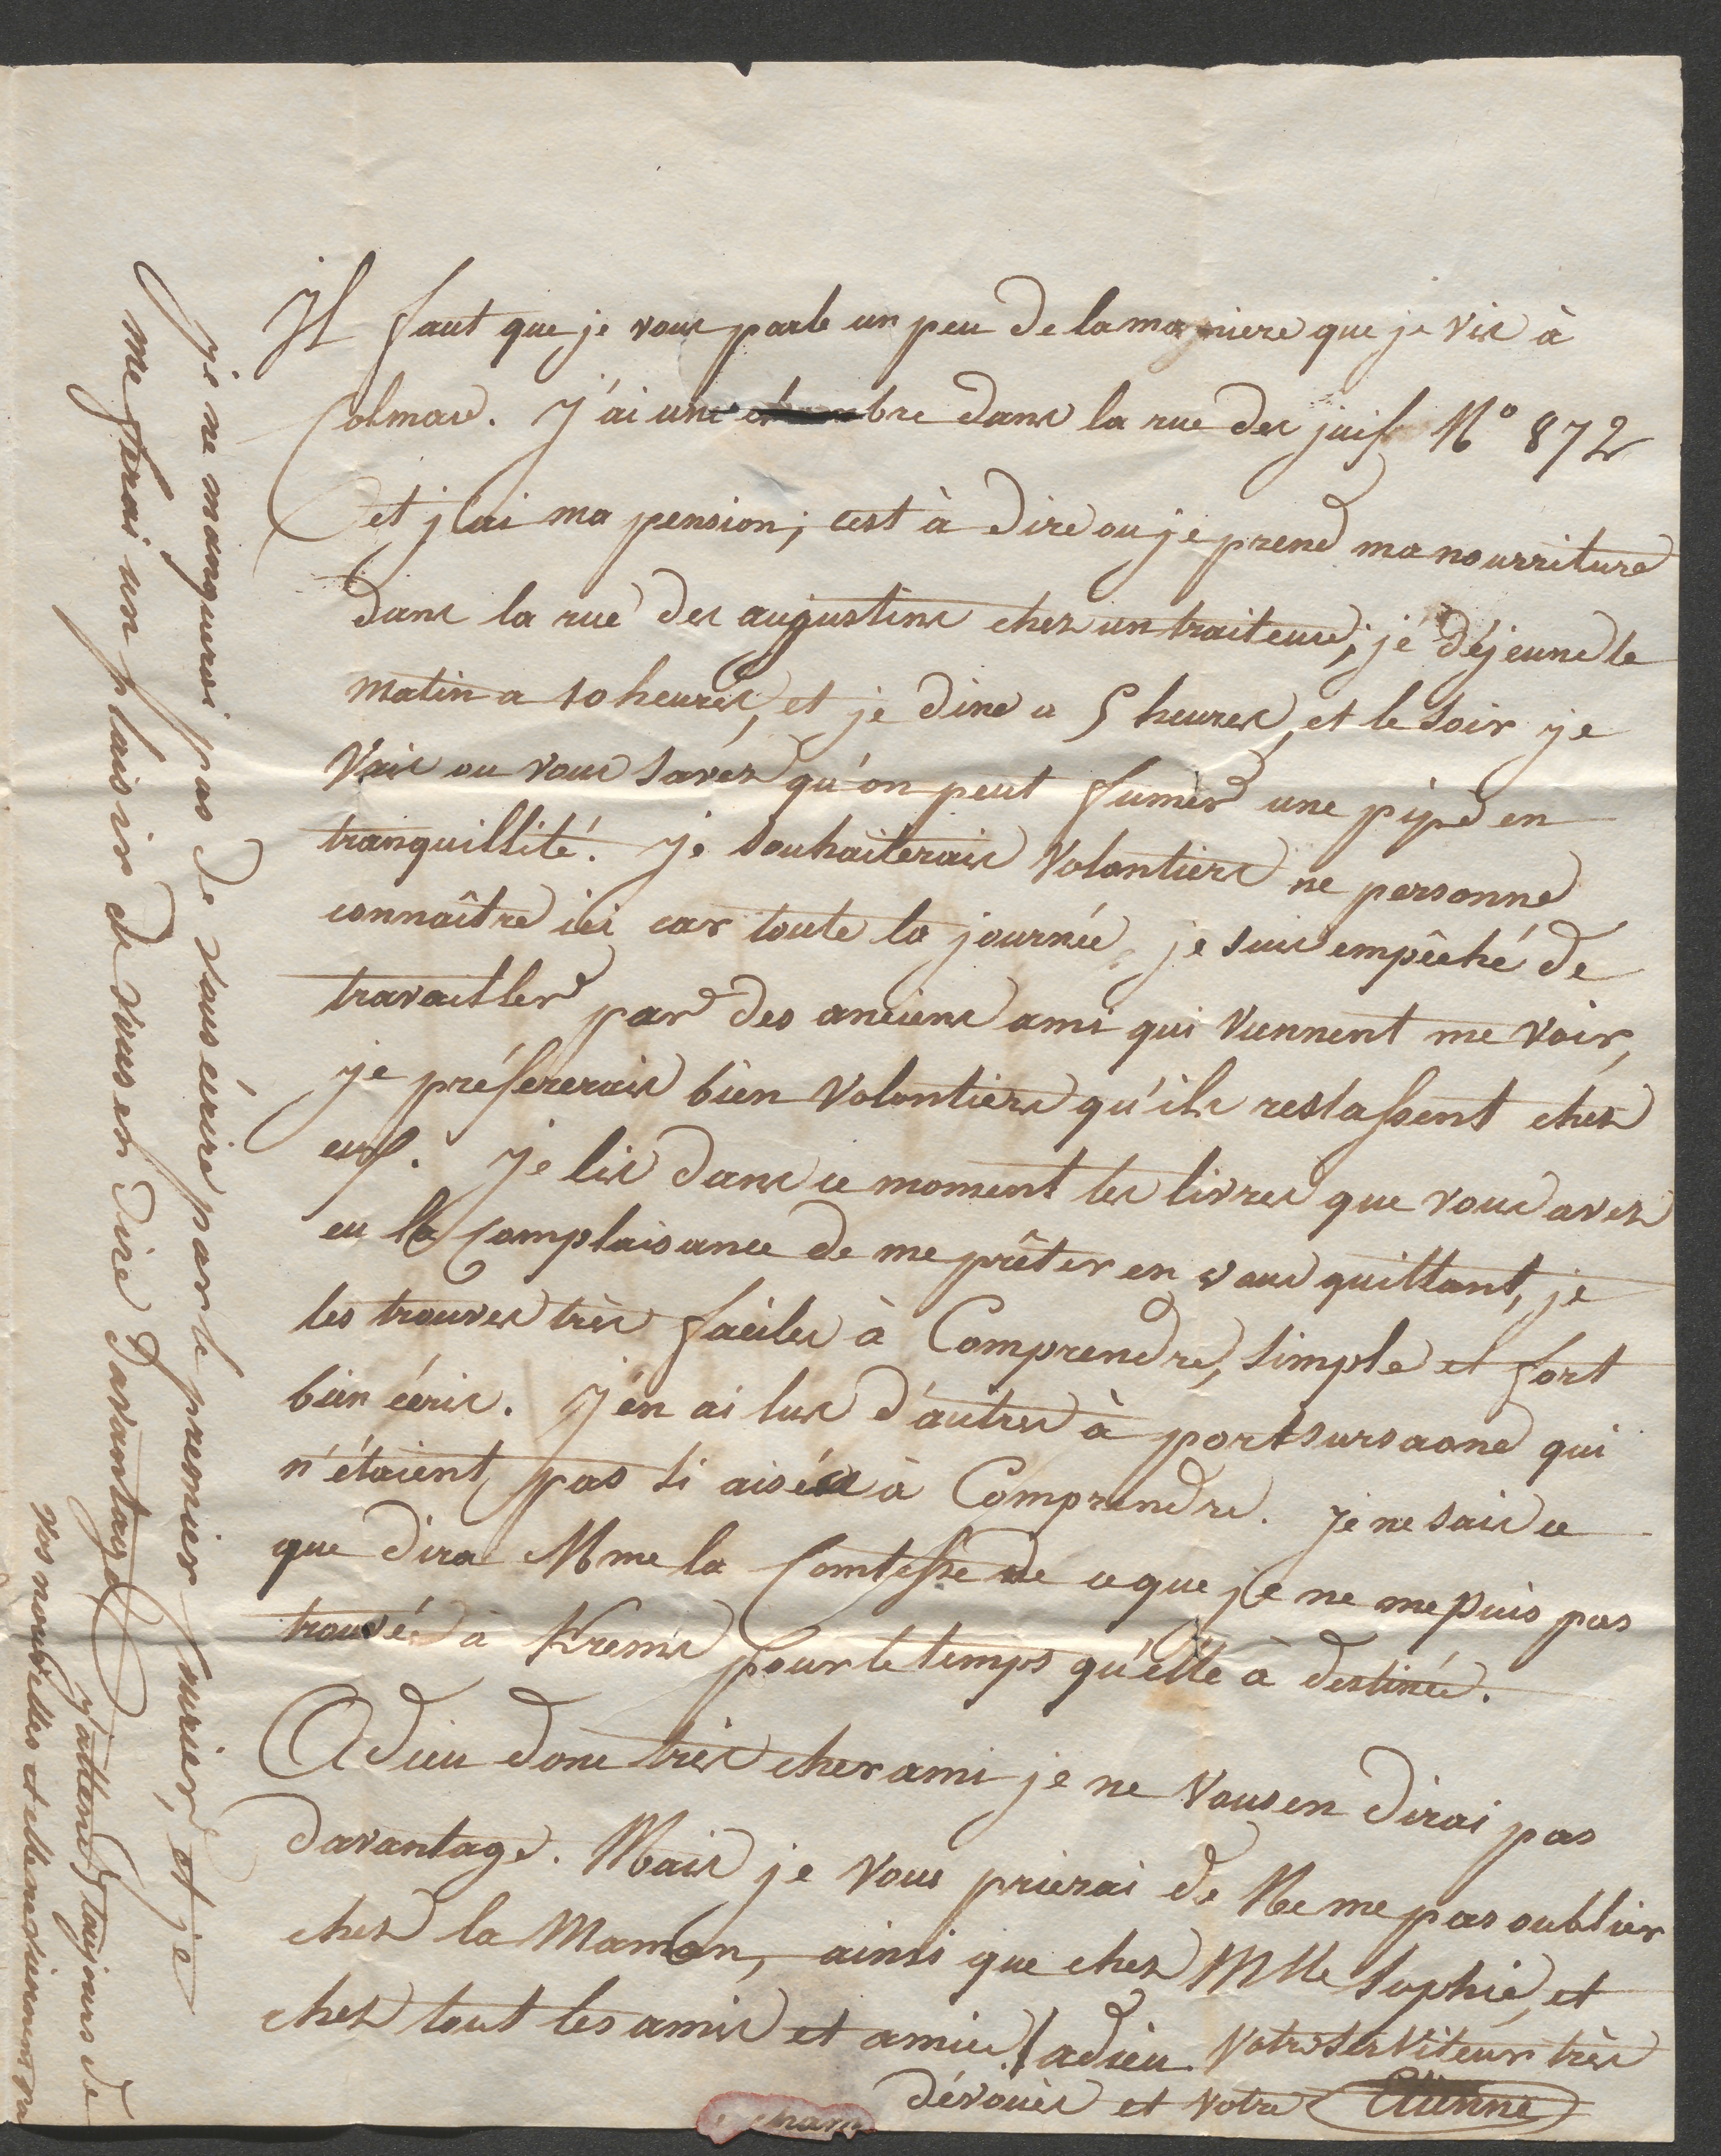 Il faut que je vous parle un peu de la maniere que je vis à
Colmar. J'ai une chambre dans la rue des juifs N° 872
et j'ai ma pension; cest à dire ou je prend ma nourriture
dans la rue des augustins chez un traiteur; je déjeune le
matin a 10 heures, et je dine a 5 heures, et le soir je
vais ou vous savez qu'on peut fumer une pipe en
tranquillité. Je souhaiterais volontiers ne personne
connaître ici car toute la journée je suis empêché de
travailler par des anciens amis qui viennent me voir,
je préfererais bien volontiers qu'ils restassent chez
eux. Je lis dans ce moment les livres que vous avez
eu la complaisance de me prêter en vous quittant, je
les trouves très faciles à Comprendre, simple et fort
bien écris. J'en ai lus d'autres à portsursaone qui
n'étaient pas si aisés à Comprendre. Je ne sais ce
que dira Mme la Comtesse de ce que je ne me puis pas
trouvé à Krems pour le temps qu'elle à destinée.
Adieu donc très cher ami je ne vous en dirai pas
davantage. Mais je vous prierai de Ne me pas oublier
chez la Maman, ainsi que chez Mlle Sophie, et
chez tout les amis et amies! adieu votre serviteur très
dévoués et votre Etienne
je ne manquerai pas de vous écrire par le premier courier, et je
me ferai un plaisir de vous en dire davantage,
j'attend toujours de
vos nouvelles et